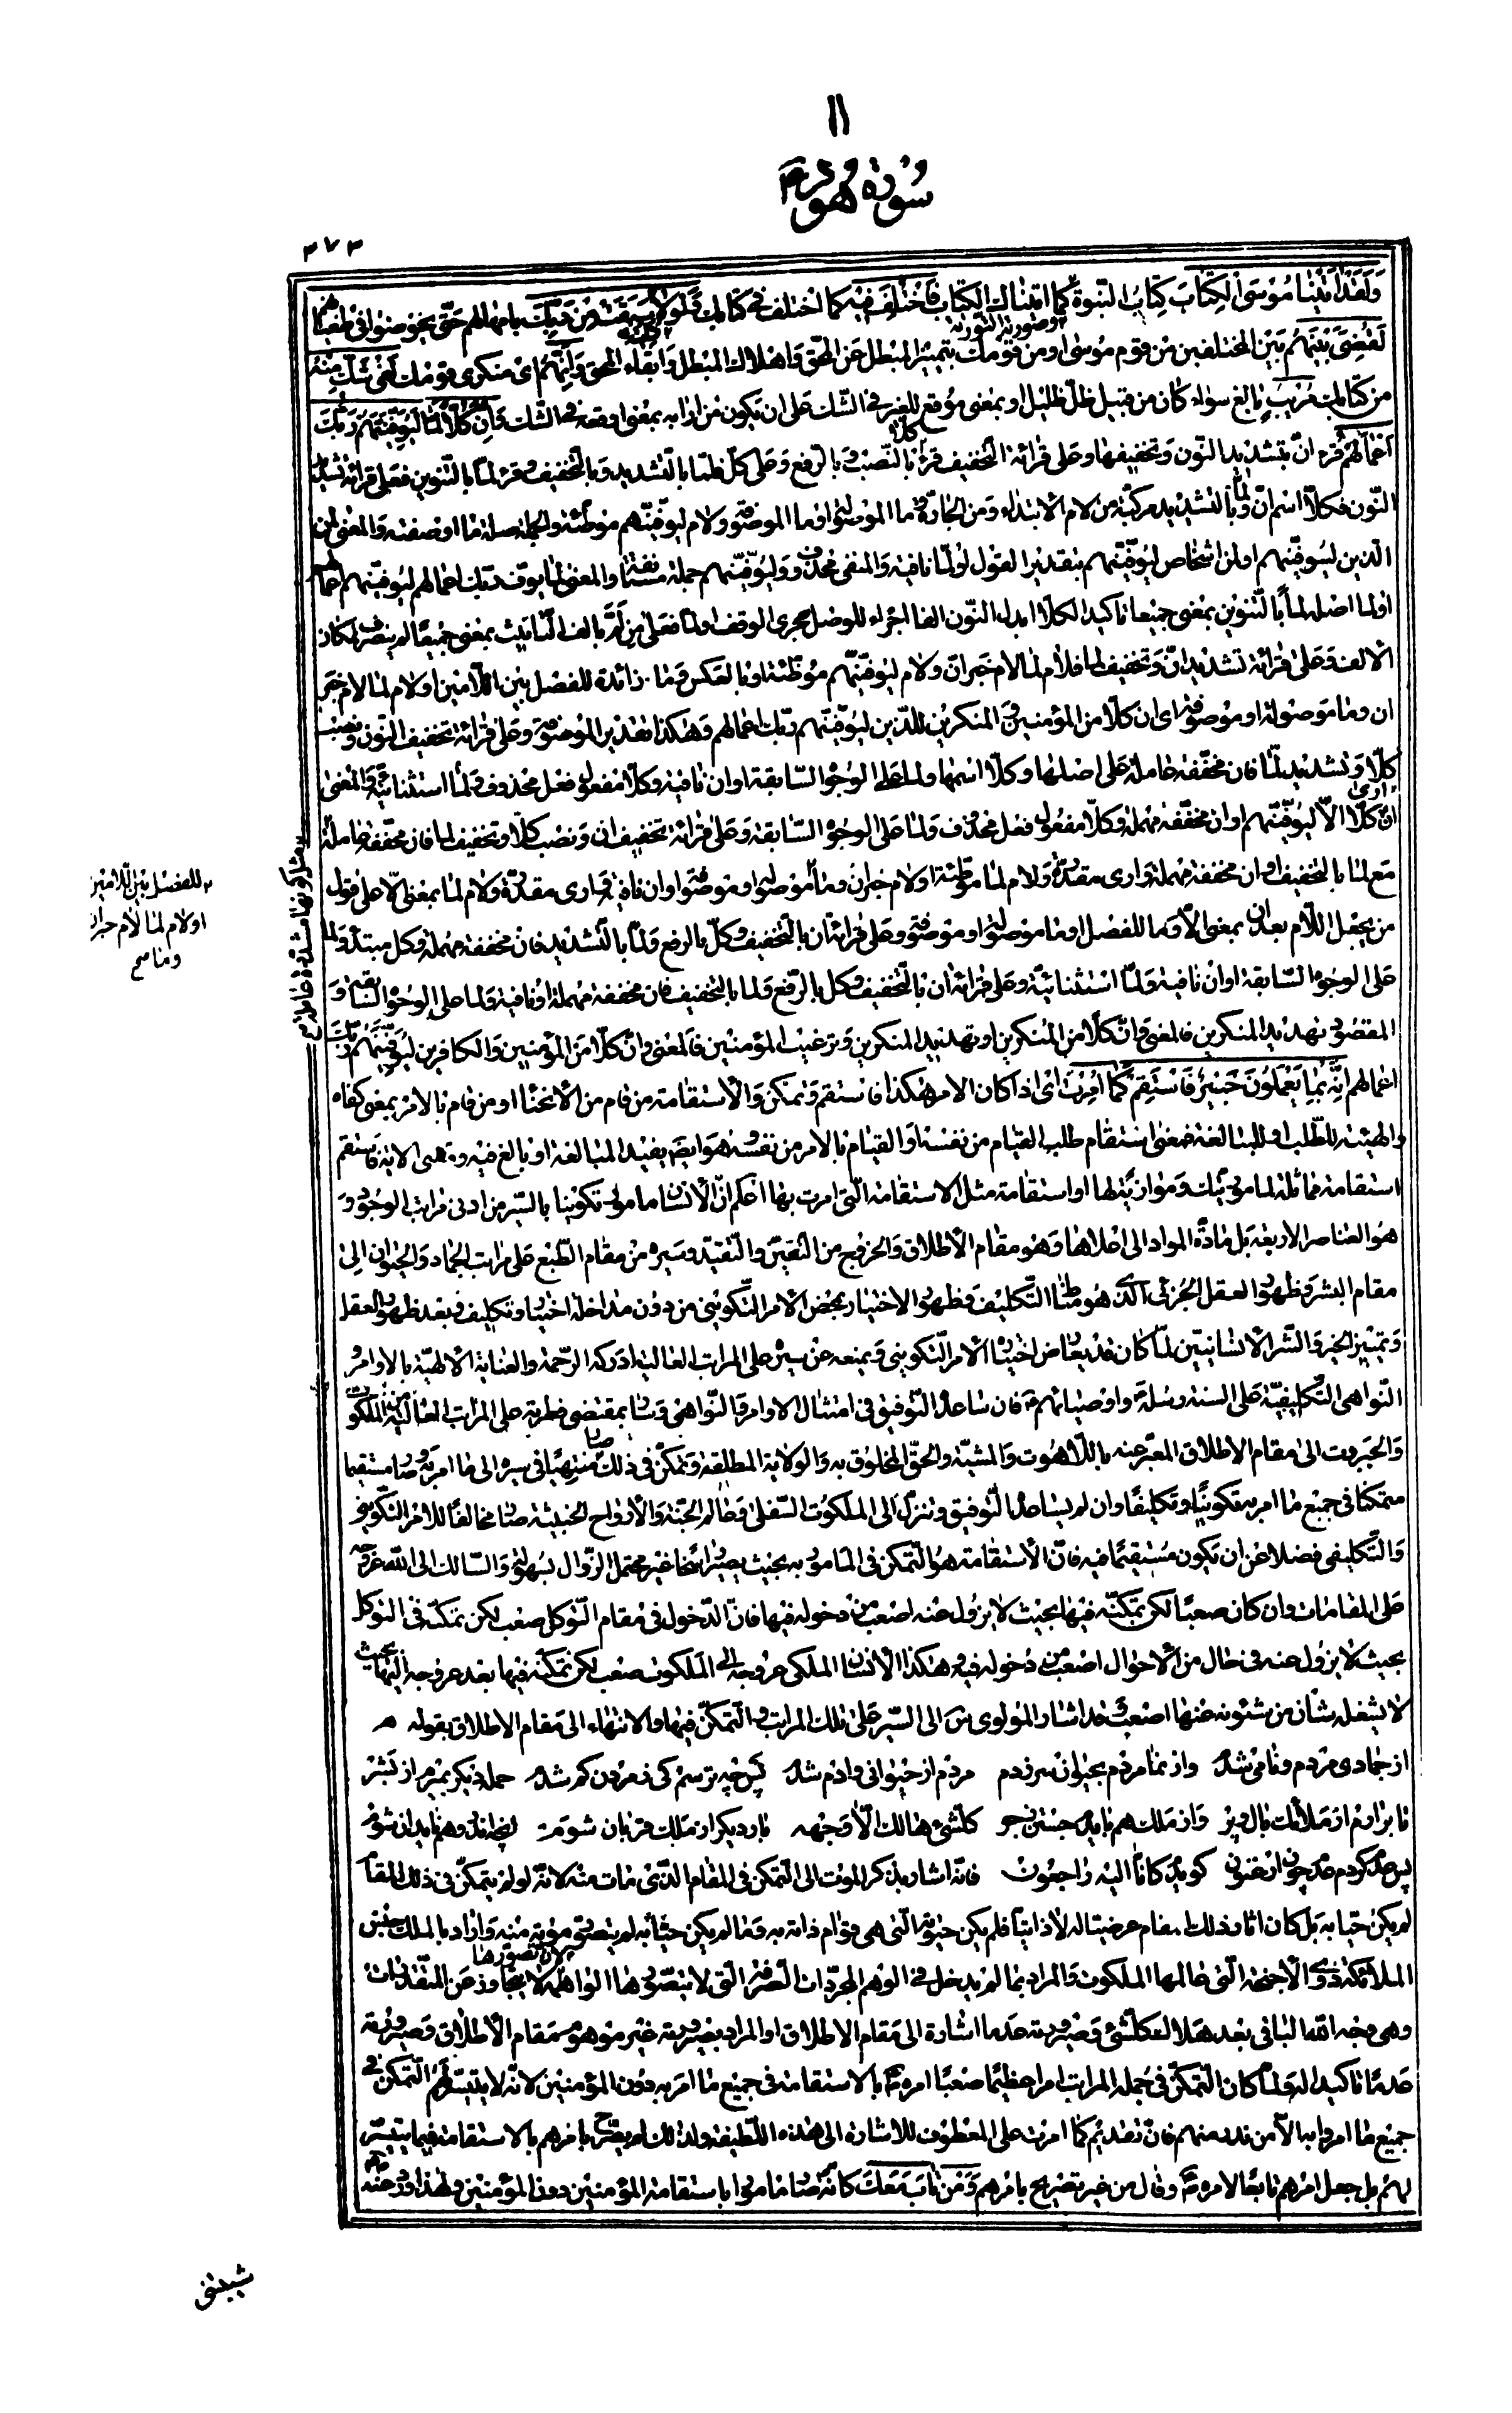 ١١
سورة هود
٣٧٣
وَلَقَدْ اٰتَيْنَا مُوسَى الْكِتٰابَ كتاب النّبوّة وصورته التّورية كما اتيناك الكتاب فَاخْتُلِفَ فِيهِ كما اختلف فى كتابك وَلَوْلاٰ كَلِمَةٌ سَبَقَتْ مِنْ رَبِّكَ بامهالهم حتّى يخوضوا فى طغيانهم
لَقُضِىَ بَيْنَهُمْ بين المختلفين من قوم موسى او من قومك بتميز المبطل عن المحقّ واهلاك المبطل وابقاء المحق وَاِنَّهُمْ اى منكرى قومك لَفِى شَكٍّ مِنْهُ
من كتابك مُرِيبٍ بالغ سواء كان من قبيل ظلّ ظليل او بمعنى موقع للغير فى الشّك على ان يكون من ارابه بمعنى اوقعه فى الشّك وَاِنَّ كُلّاً لَمّٰا لَيُوَفِّيَنَّهُمْ رَبُّكَ
اَعْمٰالَهُمْ قرء انّ بتشديد النّون وتخفيفها وعلى قرائة التّخفيف قرئ كلّا بالنّصب وبالرّفع وعلى كلّ فلمّا بالتّشديد وبالتّخفيف وقرئ لمّاً بالتّنوين فعلى قرائة تشديد
النّون فكلّا اسم انّ ولمّا بالتّشديد مركّبة من لام الابتداء ومن الجارّة وما الموصولة او ما الموصوفة ولام ليوفّينّهم موطّئة والجملة صلة ما او صفته والمعنى لمن
الّذين ليوفّينّهم او لمن اشخاص ليوفّينّهم بتقدير القول او لمّا نافية والمنفى محذوف وليوفّينّهم جملة مستأنفة والمعنى لمّا يوف ربّك اعمالهم ليوفّينّهم اعمالهم
او لمّا اصله لمّاً بالتّنوين بمعنى جميعاً تاكيد لكلّا ابدل النّون الفا اجراء للوصل مجرى الوقف او لمّا فعلى من لمّ بالف التّانيث بمعنى جميعاً لم ينصرف لمكان
الالف وعلى قرائة تشديد انّ وتخفيف لما فلام لما لام خبر انّ ولام ليوفّينّهم موطّئة او بالعكس وما زائدة للفصل بين اللّامين او لام لما لام خبر
ان وما موصولة او موصوفة اى ان كلّا من المؤمنين والمنكرين للّذين ليوفّينّهم ربّك اعمالهم وهكذا تقدير الموصوفة وعلى قرائة تخفيف النّون ونصب
كلّا وتشديد لمّا فان مخفّفة عاملة على اصلها وكلّا اسمها ولمّا على الوجوه السّابقة او ان نافية وكلّا مفعول فعل محذوف ولمّا استثنائيّة والمعنى
ان ارى كلّا الّا ليوفّينّهم او ان مخفّفة مهملة وكلّا مفعول فعل محذوف ولمّا على الوجوه السّابقة وعلى قرائة تخفيف ان ونصب كلّا وتخفيف لما فان مخفّفة عاملة
مع لما بالتّخفيف او ان مخفّفة مهملة وارى مقدّرة ولام لما موطّئة او لام خبر ان وما موصولة او موصوفة او ان نافية وارى مقدّرة ولام لما بمعنى الّا على قول
من يجعل اللّام بعد ان بمعنى الّا وما للفصل او ما موصولة او موصوفة وعلى قرائة ان بالتّخفيف وكلّ بالرفع ولمّا بالتّشديد فان مخفّفة مهملة وكل مبتدأ ولمّا
على الوجوه السّابقة او ان نافية ولمّا استثنائيّة وعلى قرائة ان بالتّخفيف وكل بالرّفع ولما بالتّخفيف فان مخفّفة مهملة او نافية ولما على الوجوه السّابقة و
المقصود تهديد المنكرين فالمعنى وانّ كلّا من المنكرين او تهديد المنكرين وترغيب المؤمنين فالمعنى وانّ كلّا من المؤمنين والكافرين ليوفّينّهم ربّك
اعمالهم اِنَّهُ بِمٰا يَعْمَلُونَ خَبِيرٌ فَاسْتَقِمْ كَمٰا اُمِرْتَ اى اذا كان الامر هكذا فاستقم وتمكّن والاستقامة من قام من الانحناء او من قام بالامر بمعنى كفاه
والهيئة للطّلب او للمبالغة فمعنى استقام طلب القيام من نفسه او القيام بالامر من نفسه وهو ايضاً يفيد المبالغة او بالغ فيه ومعنى الاية فاستقم
استقامة مماثلة لماموريّتك وموازيتها او استقامة مثل الاستقامة الّتى امرت بها اعلم انّ الانسان مامور تكويناً بالسّير من ادنى مراتب الوجود و
هو العناصر الاربعة بل مادّة المواد الى اعلاها وهو مقام الاطلاق والخروج من التّعيّن والتّقيّد وسيره من مقام الطّبع على مراتب الجماد والحيوان الى
مقام البشر وظهور العقل الجزئى الّذى هو مناط التّكليف وظهور الاختيار بمحض الامر التّكوينى من دون مداخلة اختيار وتكليف وبعد ظهور العقل
وتميز الخير والشّر الانسانيّين لمّا كان قد يعارض اختياره الامر التّكوينى ويمنعه عن سيره على المراتب العالية ادركه الرّحمة والعناية الالهيّة بالاوامر و
النّواهى التّكليفيّة على السنة رسله واوصيائهم فان ساعده التّوفيق فى امتثال الاوامر والنّواهى وسار بمقتضى فطرته على المراتب العالية من الملكوت
والجبروت الى مقام الاطلاق المعبّر عنه باللّاهوت والمشيّة والحقّ المخلوق به والولاية المطلقة وتمكّن فى ذلك صار منتهياً فى سيره الى ما امر به وصار مستقيماً
متمكّناً فى جميع ما امر به تكويناً وتكليفاً وان لم يساعده التّوفيق وتنزّل الى الملكوت السّفلى وعالم الجنّة والارواح الخبيثة صار مخالفاً للامر التّكوينى
والتّكليفى فضلا عن ان يكون مستقيماً فيه فانّ الاستقامة هو التّمكن فى المامور به بحيث يصير راسخاً غير محتمل الزّوال بسهولة والسّالك الى اللّه عروجه
على المقامات وان كان صعباً لكن تمكّنه فيها بحيث لا يزول عنه اصعب من دخوله فيها فانّ الدّخول فى مقام التّوكل صعب لكن تمكّنه فى التّوكل
بحيث لا يزول عنه فى حال من الاحوال اصعب من دخوله فيه وهكذا الانسان الملكى عروجه الى الملكوت صعب لكن تمكّنه فيها بعد عروجه اليها بحيث
لا يشغله شأن من شئونه عنها اصعب وقد اشار المولوى الى السّير على تلك المراتب والتّمكّن فيها والانتهاء الى مقام الاطلاق بقوله
از جمادى مردم و نامى شدم وز نما مردم بحيوان سر زدم مردم از حيوانى و آدم شدم پس چه ترسم كى ز مردن كم شدم حمله ديگر بميرم از بشر
تا برآرم از ملائك بال و پر وز ملك هم بايدم جستن ز جو كلّ شىء هالك الّا وجهه بار ديگر از ملك قربان شوم آنچه اندر وهم نايد آن شوم
پس عدم گردم عدم چون ارغنون گويدم كانّا اليه راجعون فانّه اشار بذكر الموت الى التّمكن فى المقام الّذى مات منه لانّه لو لم يتمكّن فى ذلك المقام
لم يكن حيّا به بل كان اناره ذلك المقام عرضيّا له لا ذاتيّا فلم يكن حيوته الّتى هى قوام ذاته به وما لم يكن حيّا به لم يتصوّر موته منه واراد بالملك جنس
الملائكة ذوى الاجنحة الّتى عالمها الملكوت والمراد بما لم يدخل فى الوهم المجرّدات الصّرفة الّتى لا يتصوّرها الواهمة لانّ تصوّرها لا يتجاوز عن المتقدّرات
وهى وجه اللّه الباقى بعد هلاك كلّ شىء وصيرورته عدماً اشارة الى مقام الاطلاق او المراد بصيرورته غير موهوم مقام الاطلاق وصيرورته
عدماً تاكيد له ولمّا كان التّمكّن فى جملة المراتب امراً عظيماً صعباً امره بالاستقامة فى جميع ما امر به دون المؤمنين لانّه لا يتيسّر لهم التّمكّن فى
جميع ما امروا به الّا من ندر منهم فانّ تقديم كما امرت على المعطوف للاشارة الى هذه اللّطيفة ولذلك لم يصرّح بامرهم بالاستقامة فيما يتيسّر
لهم بل جعل امرهم تابعاً لامره وقال من غير تصريح بامرهم وَمَنْ تٰابَ مَعَكَ كانّه صار ماموراً باستقامة المؤمنين دون المؤمنين ولهذا ورد عنه
للفصل بين اللّامين
او لام لما لام خبر ان
وما صح
شيبتنى